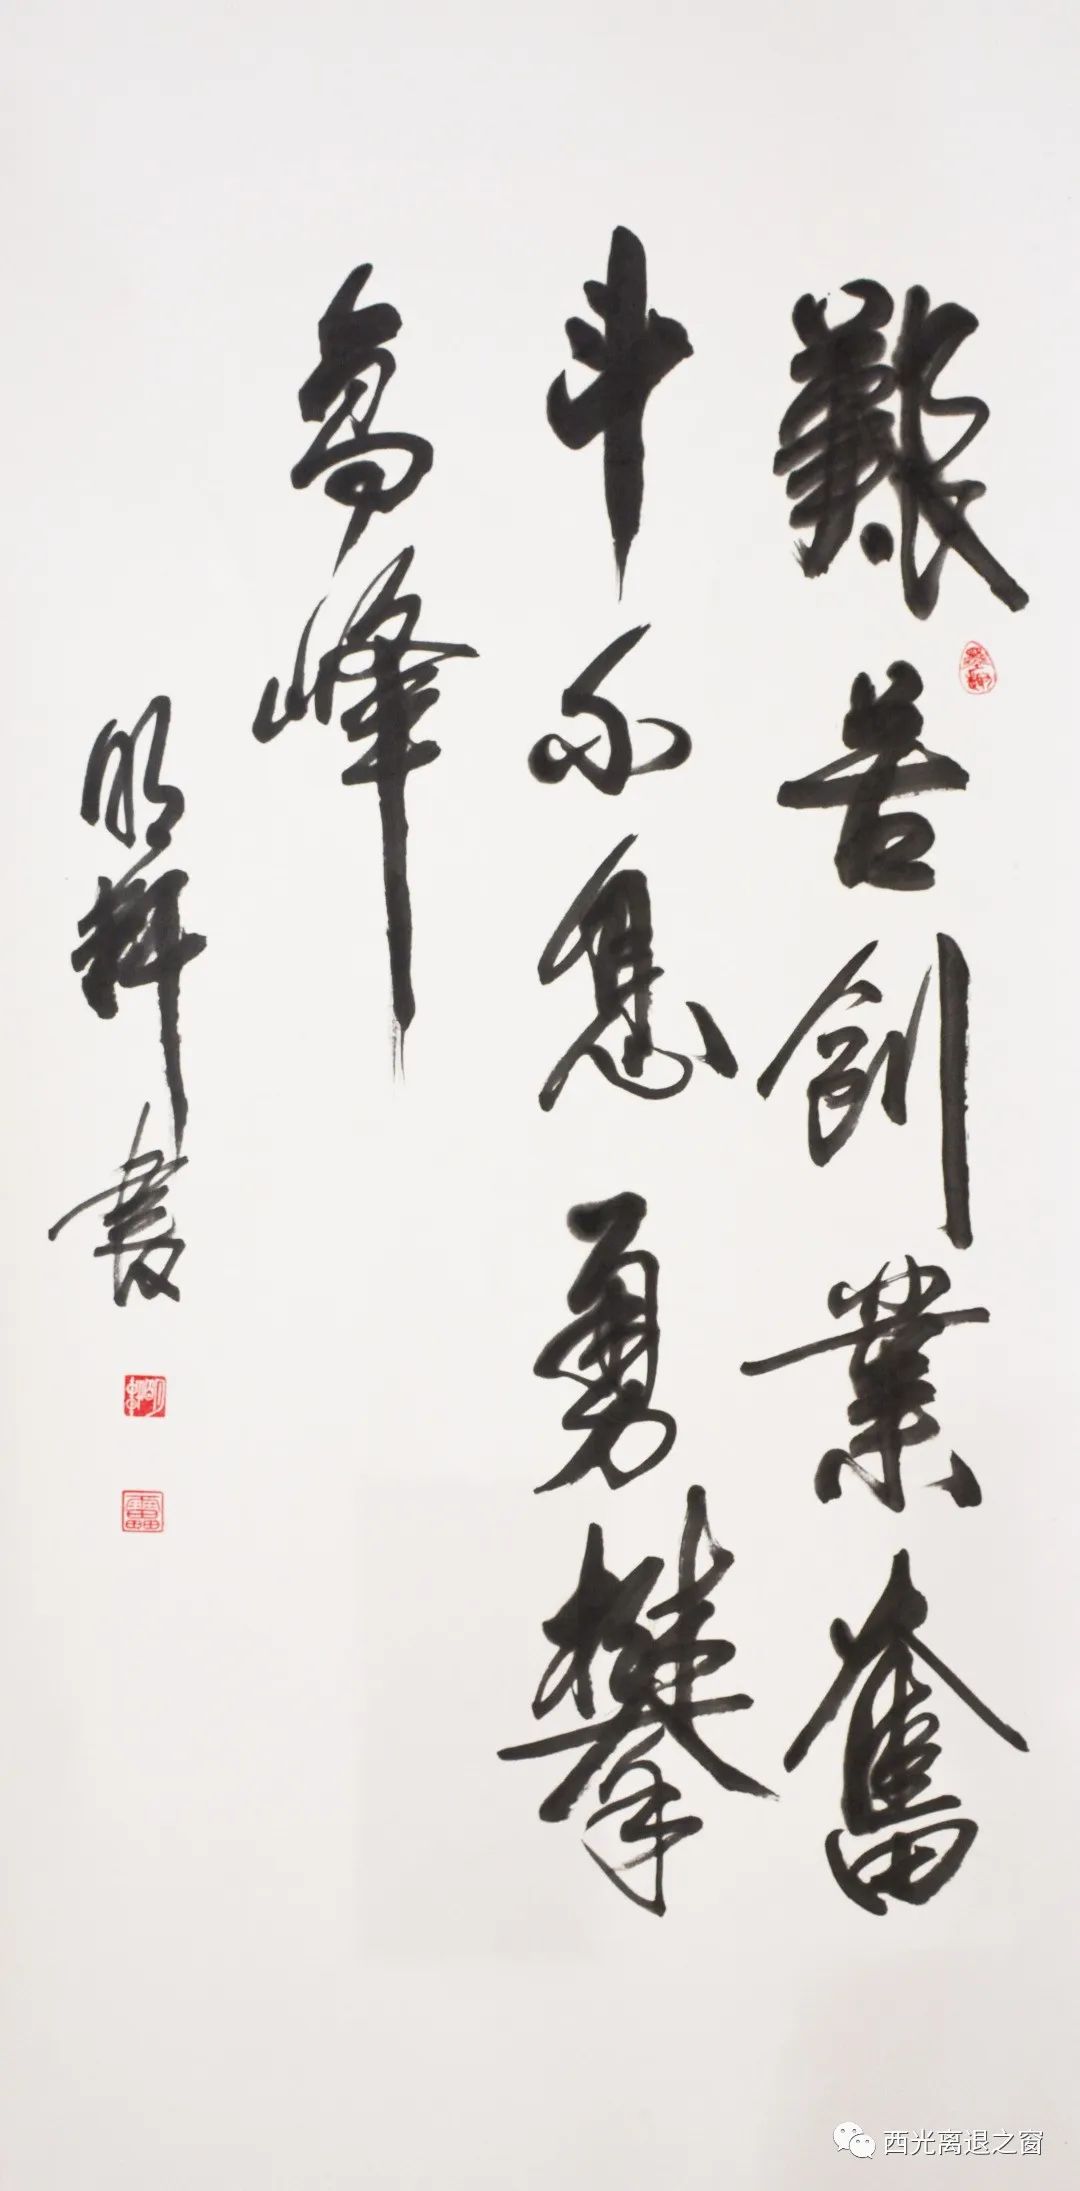 艱苦創業奮
斗不息勇攀
高峰
明輝書
西光离退之窗